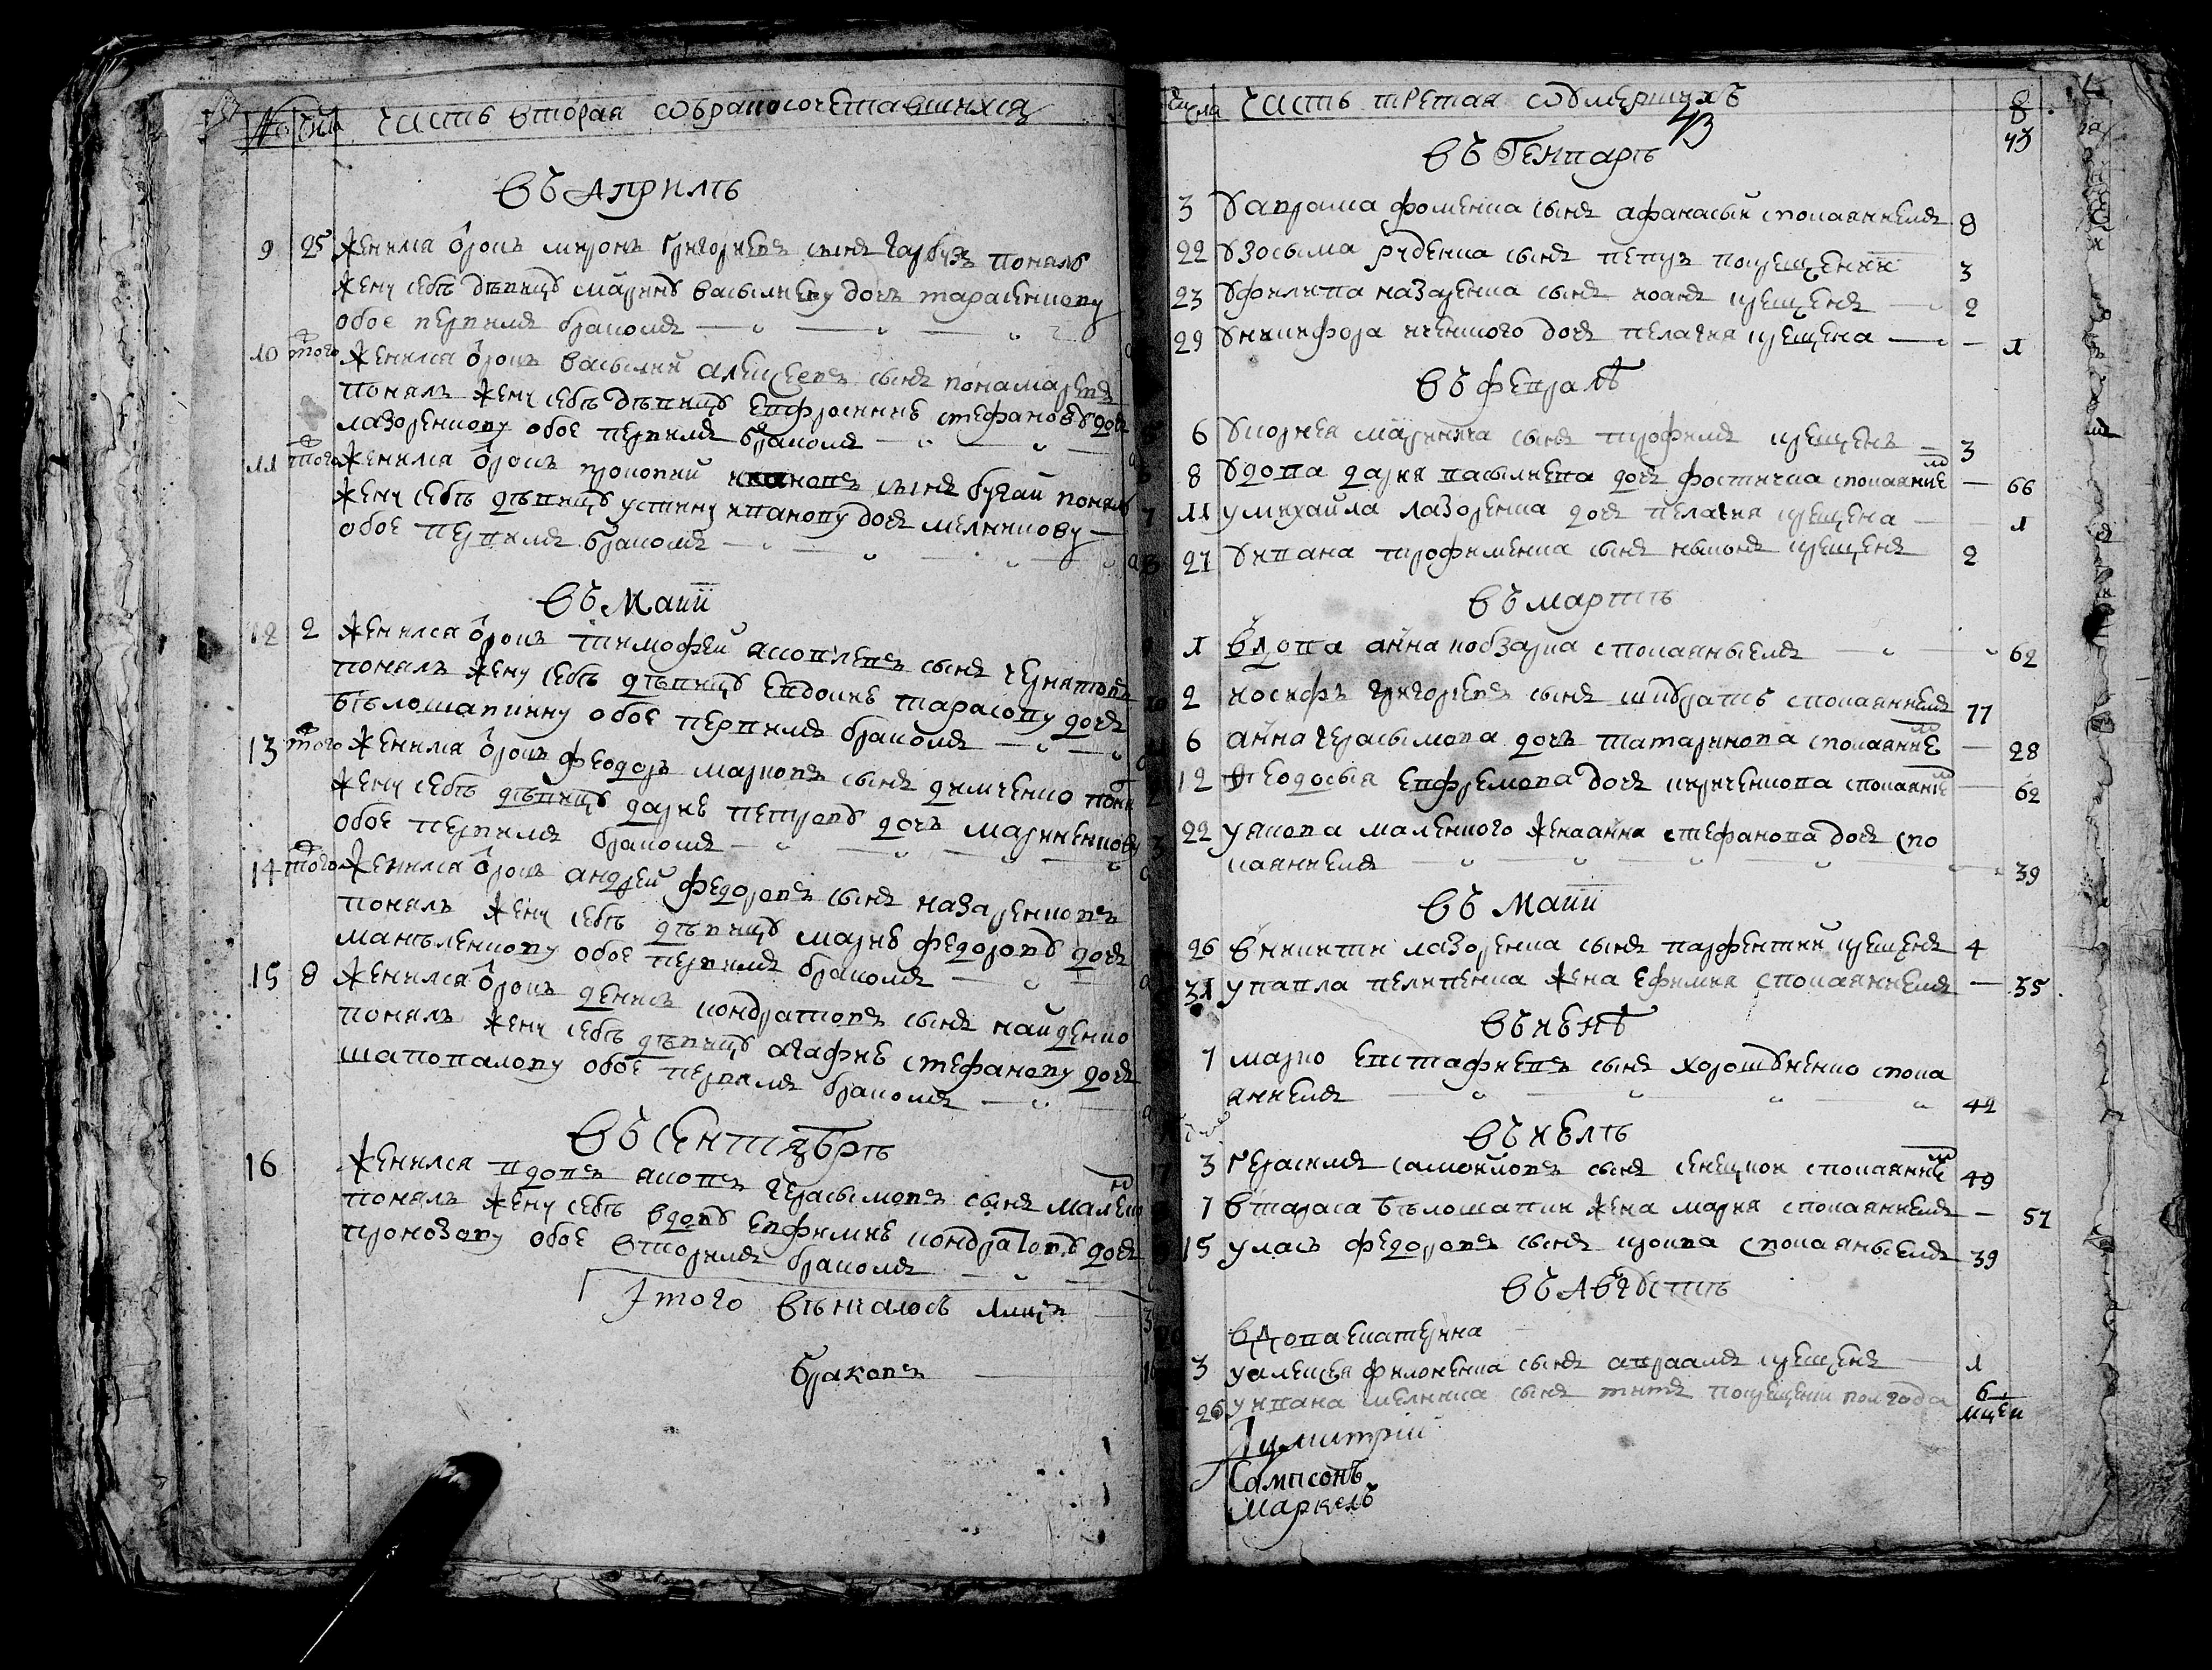 № Числа Часть вторая ѡ бракосочетавшихся
Въ Априлѣ
9 25 женился ѻтрокъ миронъ григориевъ сынъ гарбузъ понялъ
жену себѣ дѣвицꙋ маринꙋ василиеву дочь тарасенкову
обое первимъ бракомъ
10 того женился ѻтрокъ василий алеѯеевъ сынъ понамаревъ
понялъ жену себѣ дѣвицꙋ евфросинию стефановꙋ дочь
лазоренкову обое первимъ бракомъ
11 того женился ѻтрокъ прокопий ивановъ сынъ бугай понялъ
жену себѣ дѣвицꙋ устину иванову дочь мелникову
обое первимъ бракомъ
Въ Маии
12 2 женился ѻтрокъ тимофей яковлевъ сынъ
понялъ жену себѣ дѣвицꙋ евдокию тарасову дочь
бѣлошапкину обое первимъ бракомъ
13 того женился ѻтрокъ феодоръ марковъ сынъ димченко поня
жену себѣ дѣвицꙋ дарию петровꙋ дочь мариненкову
обое первимъ бракомъ
14 того женился ѻтрокъ андрей федоровъ сынъ назаренковъ
понялъ жену себѣ дѣвицꙋ марию федоровꙋ дочь
обое первимъ бракомъ
15 8 женился ѻтрокъ денисъ кондратовъ сынъ найденко
понялъ жену себѣ дѣвицꙋ агафию стефанову дочь
шаповалову обое первимъ бракомъ
Въ Сентябрѣ
16 женился вдовъ яковъ герасымовъ сынъ
понялъ жену себѣ вдовꙋ евфимию кондратовꙋ дочь
обое вторимъ бракомъ
Итого вѣнчалось лицъ
браковъ 16
Числа Часть третая ѡ умершихъ
43
43
Въ Генварѣ
3 Ꙋ фоменка сынъ афанасый споканиемъ 8
22 Ꙋ зосыма руденка сынъ петръ покрещении 3
23 Ꙋ филипа назаренка сынъ иоанъ крещенъ 2
29 Ꙋ никифора дочь пелагия крещена 1
Въ Февралѣ
6 Ꙋ корнея сынъ трофимъ крещенъ 3
8 Ꙋдова дария василиева дочь споканием 66
11 У михайла лазоренка дочь пелагия крещена 1
27 Ꙋ ивана трофименка сынъ крещенъ 2
Въ Мартѣ
1 Вдова анна кобзарка спокаяныемъ 62
2 иосифъ григориевъ сынъ спокаяниемъ 77
6 анна герасымова дочь татаринова спокаяние 28
12 Феодосыя евфремова дочь кириченкова спокаяние 62
22 У якова маленкого жена анна стефанова дочь спо
каяниемъ 39
Въ Маии
26 В никити лазоренка сынъ парфентий крещенъ 4
31 У павла пелипенка жена ефимия спокаяниемъ 35
Въ июнѣ
7 Марко евстафиевъ сынъ хорошꙋненко спока
яниемъ 42
Въ июлѣ
3 Герасимъ самойловъ сынъ спокаянием 49
7 В тараса бѣлошапки жена мария спокаяниемъ 57
15 У ласъ федоровъ сынъ спокаяныемъ 39
Въ Августѣ
Вдова екатерина
3 У алеѯея филоненка сынъ авраамъ крещенъ 1
26 У ивана мелника сынъ титъ покрещени полгода 6 мцей
Димитрий
Сампсонъ
Маркелъ